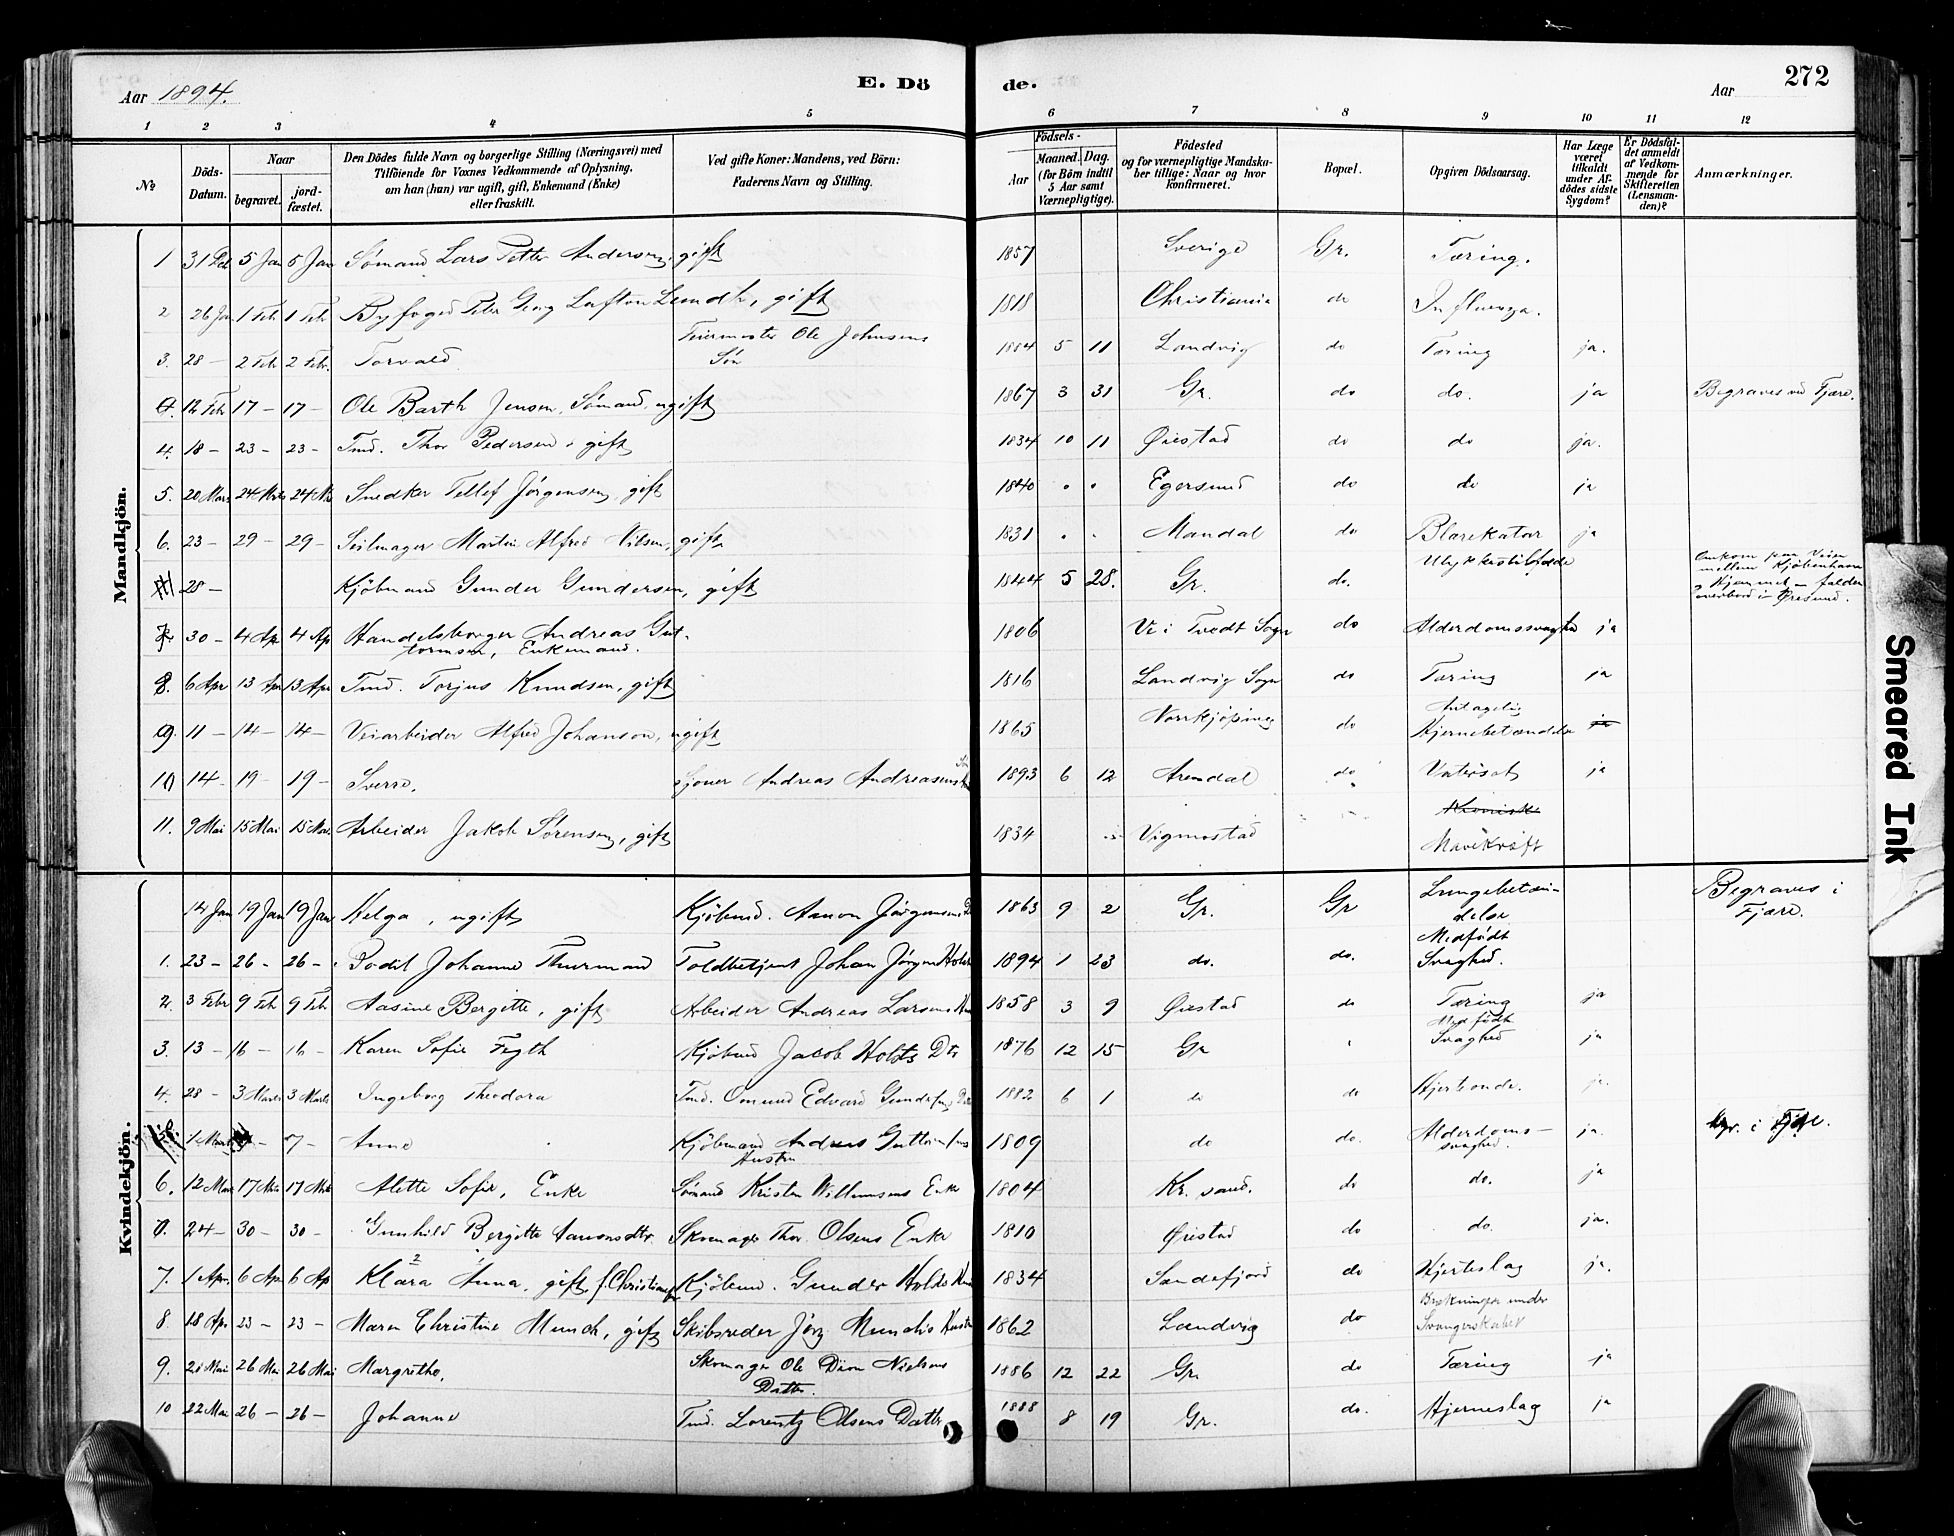 Aar 1894.
E. Dö
de.
Aar
272
1 2 3 4 5 6 7 8 9 10 11 12
№
Döds-
Datum.
Naar
begravet.
jord-
fæstet.
Den Dödes fulde Navn og borgerlige Stilling (Næringsvei) med
Tilföiende for Voxnes Vedkommende af Oplysning,
om han (hun) var ugift, gift, Enkemand (Enke)
eller fraskilt.
Ved gifte Koner: Mandens, ved Börn:
Faderens Navn og Stilling.
Födsels-
Aar
Maaned. Dag.
(for Börn indtil
5 Aar samt
Værnepligtige).
Födested
og for værnepligtige Mandska-
ber tillige: Naar og hvor
konfirmeret.
Bopæl.
Opgiven Dödsaarsag.
Har Læge
været
tilkaldt
under Af-
dödes sidste
Sygdom?
Er Dödsfal-
det anmeldt
af Vedkom-
mende for
Skifteretten
(Lensman-
den)?
Anmærkninger.
Mandkjön.
1 31 5 Jan 5 Jan Sømand Lars Petter Andersen, gift 1857 Sverige Gr. Tæring.
2 26 Jan 1 Febr 1 Febr Byfoged Peter Georg Lufton Lundh, gift 1818 Christiania do Influenza.
3. 28 – 2 Febr 2 Febr. Torvald Feiermester Ole Johnsens
Søn 1884 5 11 Landvig do Tæring ja.
12 Febr 17 – 17 – Ole Barth Jensen, Sømand, ugift 1867 3 31 Gr. do do. ja Begraves ved Fjære.
4. 18 – 23 – 23 – Tmd. Thor Pedersen, gift 1834 10 11 Øiestad do do ja.
5. 20 Mars 24 24 Snedker Tellef Jörgensen, gift 1840 Egersund do do ja
6. 23 – 29 – 29 – Seilmager Martin Alfred Nilsen, gift 1831 Mandal do Blærekatar ja
28 – Kjöbmand Gunder Gundersen, gift 1844 5 28. Gr. do. Ulykkestilfælde
Omkom paa Veien
mellem Kjöbenhavn
og Hjemmet – falden
overbord i Øresund.
7. 30 – 4 Ap 4 Ap Handelsborger Andreas Gut-
tormsen, Enkemand. 1806 Ve i Tvedt Sogn do Alderdomssvaghed ja
8. 6 Apr 13 Apr 13 Apr Tmd. Torjus Knudsen, gift 1816 Landvig Sogn do Tæring ja
9. 11 – 14 – 14 – Veiarbeider Alfred Johanson, ugift 1865 Norrkjøping do Antagelig
Hjernebetændelse ja
10 14 – 19 – 19 – Sverre. Sjouer Andreas Andreasens Søn 1893 6 12 Arendal do ja
11. 9 Mai 15 Mai 15 Mai Arbeider Jakob Sørensen, gift 1834 Vigmostad Kronisk
Mavekræft
Kvindekjön.
14 Jan 19 Jan 19 Jan Helga, ugift Kjöbmd. Aanon Jörgensens D 1863 9 2 Gr. Gr Lungebetæn-
delse Begraves i
Fjære.
1. 23 – 26 – 26 – Bodil Johanne Thurmand Toldbetjent Johan Jörgen Holst 1894 1 23 do. do. Medfødt
Svaghed.
2. 3 Febr 9 Feb 9 Feb Aasine Bergitte, gift Arbeider Andreas Larsens 1858 3 9 Øiestad do Tæring ja
3. 13 – 16 – 16 – Karen Sofie Kjöbmd Jacob Holsts Dtr 1876 12 15 Gr Medfødt
Svaghed ja
4. 28 – 3 Marts 3 Marts Ingeborg Theodora Tmd. Omund Edvard Gundersens Dtr 1882 6 1 do do Hjerteonde. ja.
1 Marts 7 – Anne Kjöbmand Andreas Guttormsens
Hustru 1809 do do. Alderdoms-
svaghed ja. bgr. i Fjære.
6. 12 Mar 17 17 Alette Sofie, Enke Sømand Kristen Willumsens Enke 1804 Kr. sand. do do. ja
24 – 30 – 30 – Gunhild Bergitte Aanonsdtr. Skomager Thor Olsens Enke 1810 Øiestad do do. ja.
7. 1 Apr. 6 Ap 6 Ap Klara Anna, gift, f. Kjöbmd. Gunder Holsts 1834 Sandefjord do Hjerteslag ja.
8. 18 Apr 23 – 23 – Maren Christine Munch, gift Skibsreder Jörg. Munchs Hustru 1862 Landvig do under
Svangerskabet
9. 21 Mai 26 Mai 26 Mai Margrethe, Skomager Ole Nielsens
Datter. 1886 12 22 Gr. do Tæring ja
10 22 Mai 26 – 26 – Johanne Tmd. Lorentz Olsens Datter 1888 8 19 Gr. do. Hjerneslag ja
Smeared Ink